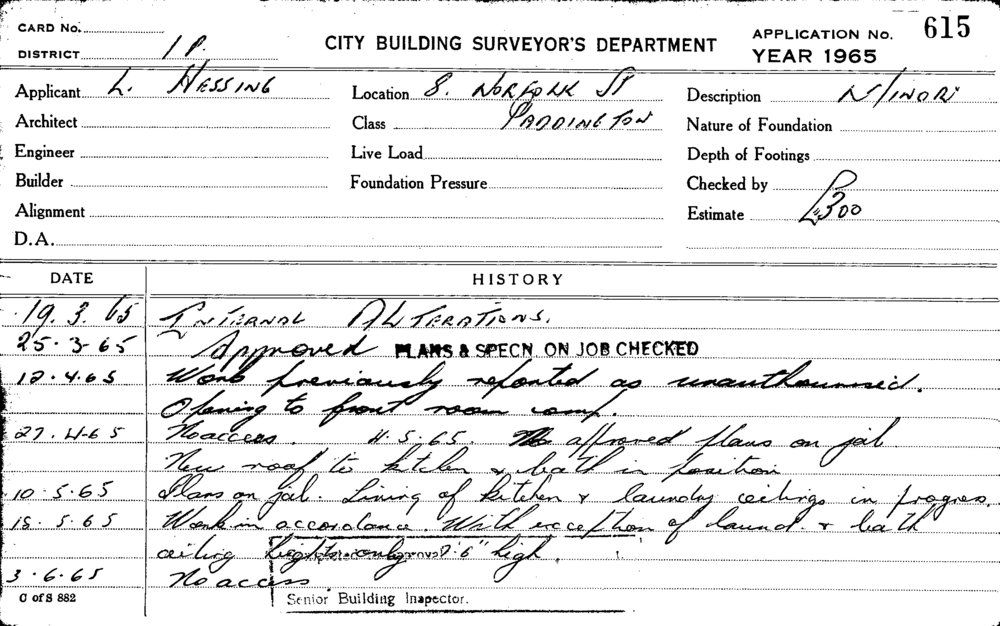 CARD No.
DISTRICT 1 P.
CITY BUILDING SURVEYOR'S DEPARTMENT
APPLICATION No. 615
YEAR 1965
Applicant L. HESSING
Location 8. NORFOLK ST
Description M/INOR
Architect
Class PADDINGTON
Nature of Foundation
Engineer
Live Load
Depth of Footings
Builder
Foundation Pressure
Checked by
Alignment
Estimate £300
D.A.
DATE HISTORY
19.3.65 INTERNAL ALTERATIONS.
25.3.65 Approved PLANS & SPECN. ON JOB CHECKED
12.4.65 Work previously reported as
Opening to front room comp.
27.4.65 No access. 4.5.65. No approved plans on job
New roof to kitchen & bath in position
10.5.65 Plans on job. Lining of kitchen & laundry ceilings in progress.
18.5.65 Work in accordance. With exception of laund. & bath
ceiling heights only 7'.6" high.
3.6.65 No access
C of S 882
Senior Building Inspector.